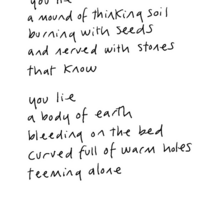 you lie
a mound of thinking soil
burning with seeds
and nerved with stones
that know
you lie
a body of earth
bleeding on the bed
curved full of warm holes
teeming alone